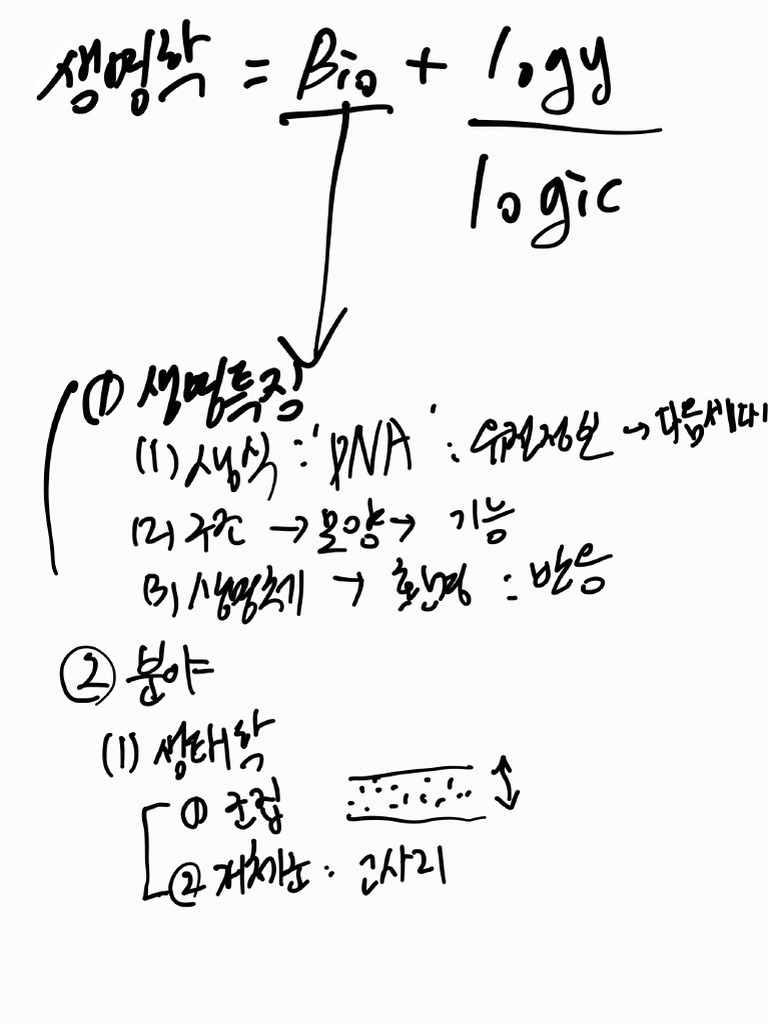 생명학 = Bio + logy
logic
① 생명특징
(1) 생식 : 'DNA' : 유전정보 → 다음세대
(2) 구조 → 모양 → 기능
(3) 생명체 → 환경 : 반응
② 분야
(1) 생태학
① 군집
② 개체군 : 고사리